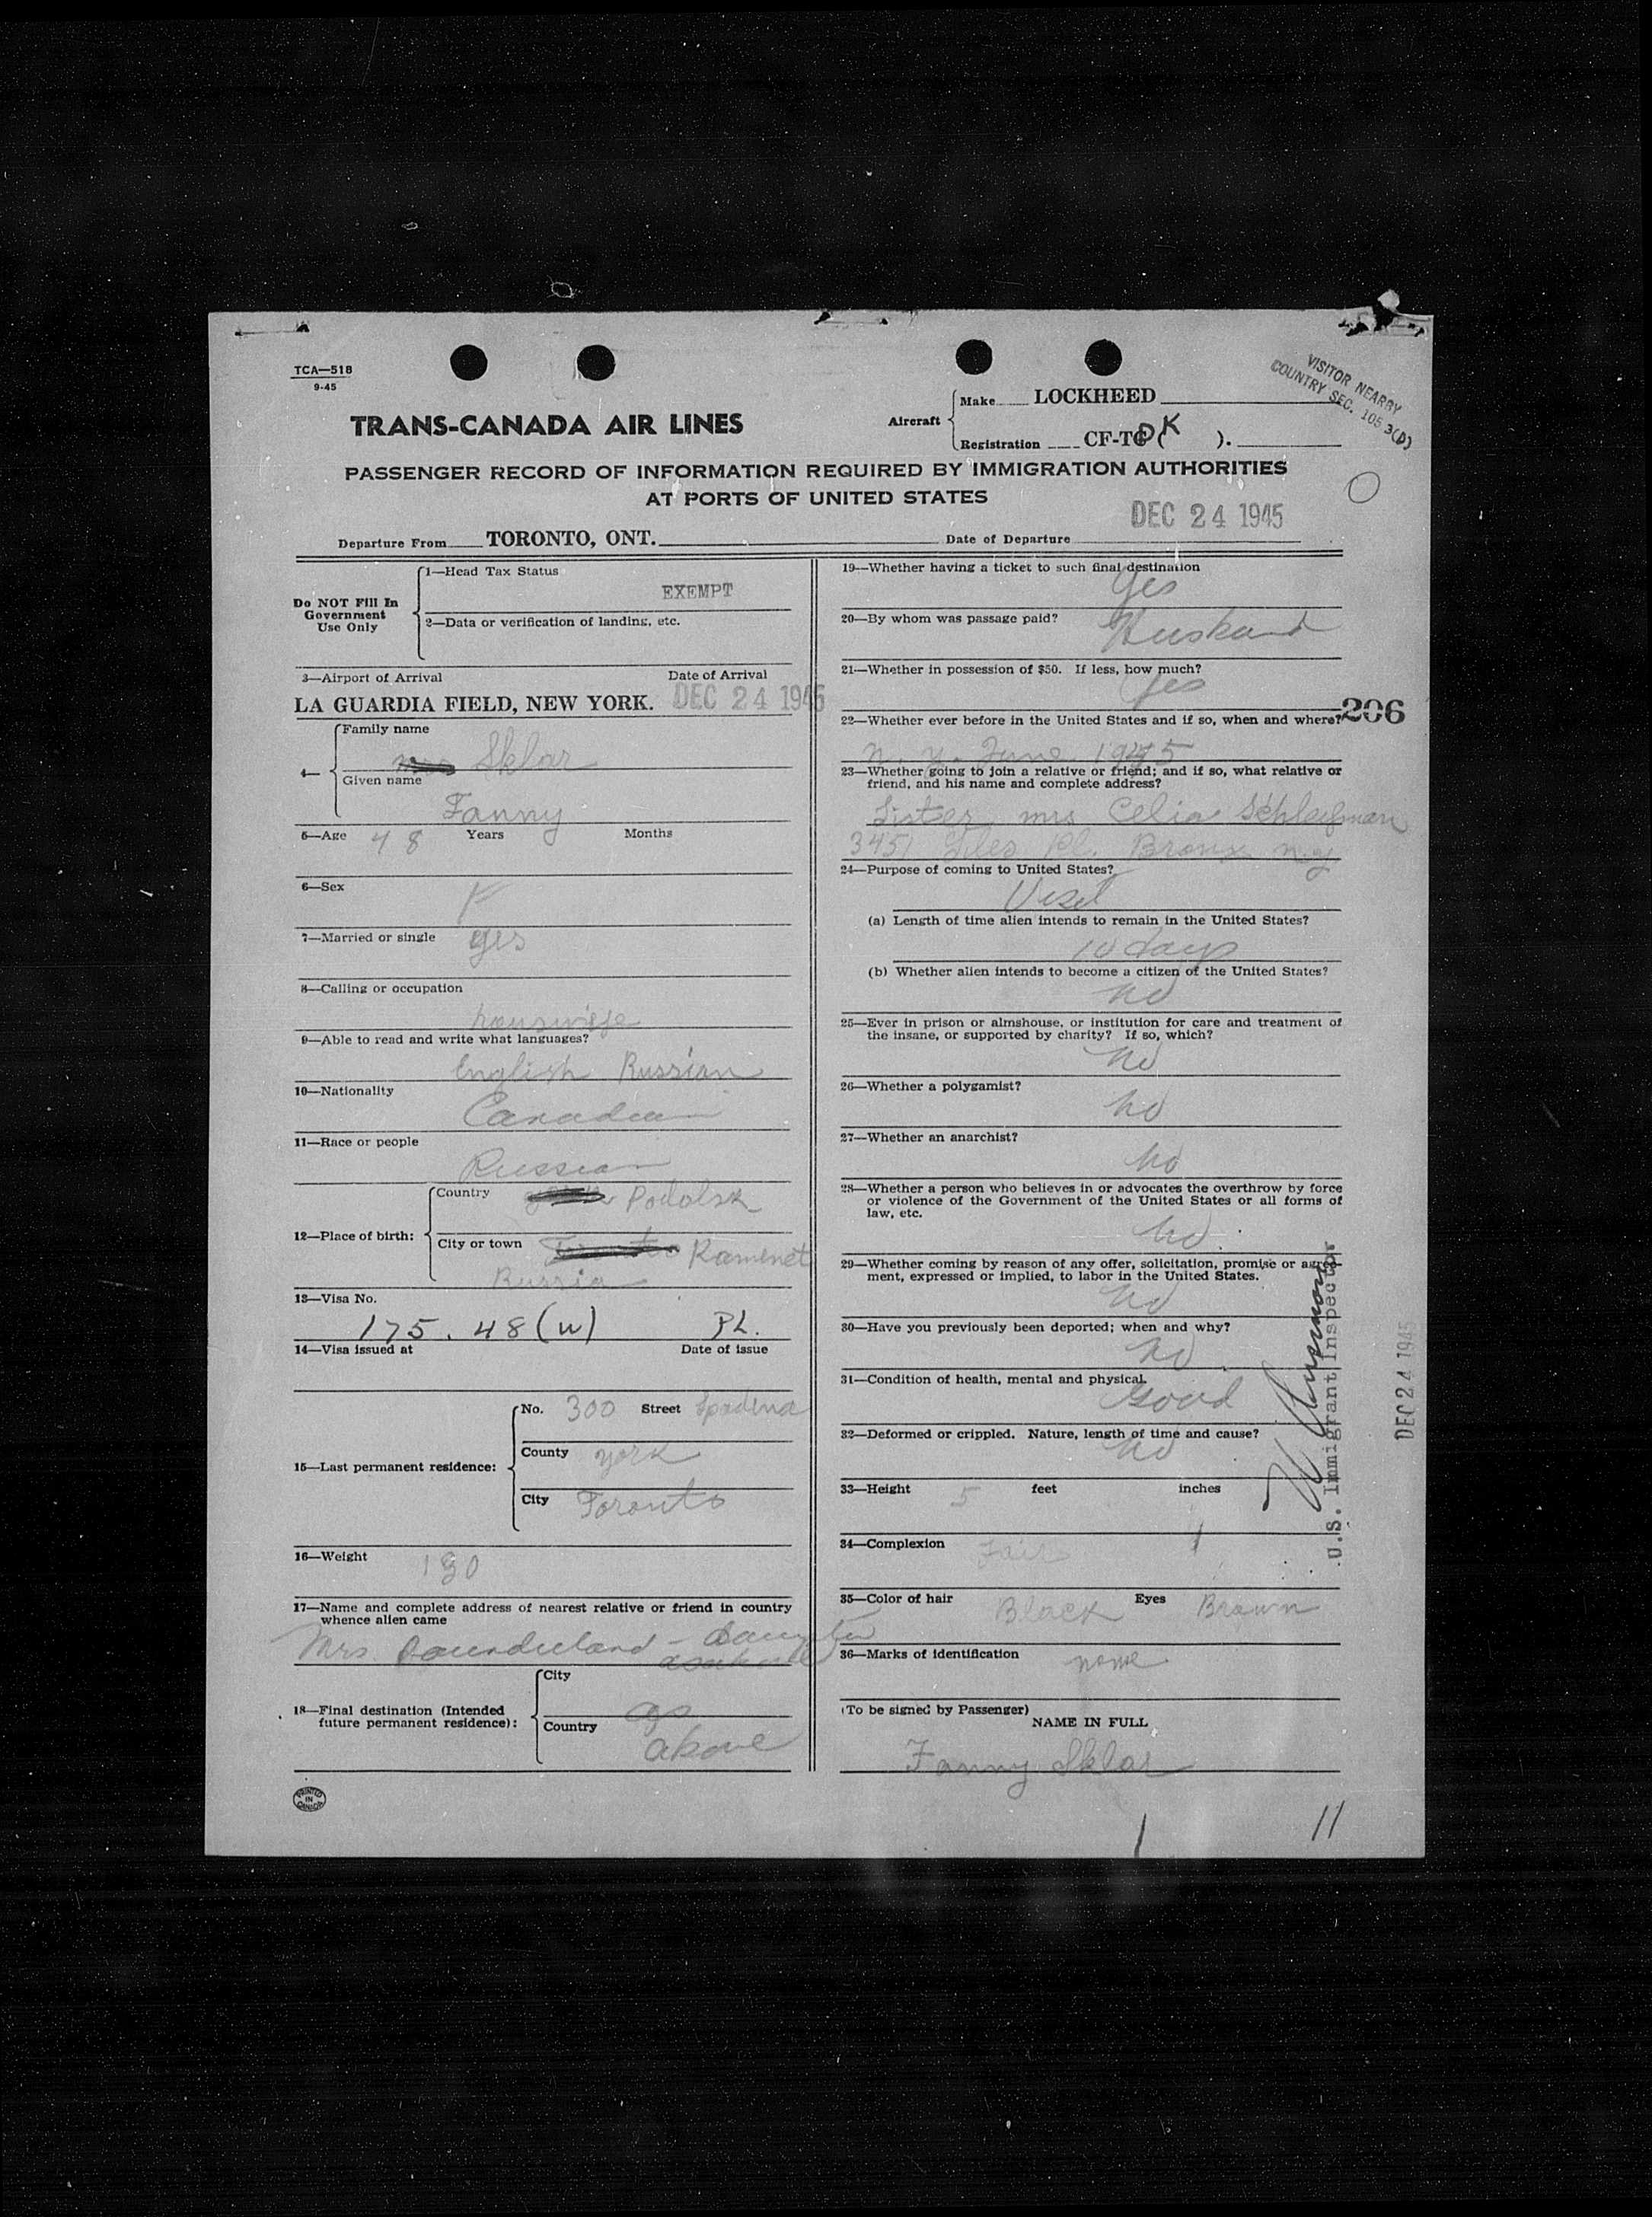 TCA—518
9-45
TRANS-CANADA AIR LINES
Aircraft
Make LOCKHEED
Registration CF-TC (DK ).
VISITOR NEARBY
COUNTRY SEC. 105 3(D)
PASSENGER RECORD OF INFORMATION REQUIRED BY IMMIGRATION AUTHORITIES
AT PORTS OF UNITED STATES
Departure From TORONTO, ONT. Date of Departure DEC 24 1945
Do NOT Fill In
Government
Use Only
1—Head Tax Status
EXEMPT
2—Data or verification of landing, etc.
3—Airport of Arrival Date of Arrival
LA GUARDIA FIELD, NEW YORK. DEC 24 1945
4—
Family name
Sklar
Given name
Fanny
5—Age 48 Years Months
6—Sex F
7—Married or single yes
8—Calling or occupation
houswife
9—Able to read and write what languages?
English Russian
10—Nationality
Canadian
11—Race or people
Russian
12—Place of birth:
Country Podolsk
City or town Kamenet
Russia
13—Visa No.
175.48(w) PL.
14—Visa issued at Date of issue
15—Last permanent residence:
No. 300 Street Spadina
County York
City Toronto
16—Weight 130
17—Name and complete address of nearest relative or friend in country
whence alien came
Mrs. - daughter
18—Final destination (Intended
future permanent residence):
City
as
Country
above
PRINTED
IN
CANADA
19—Whether having a ticket to such final destination
Yes
20—By whom was passage paid?
Husband
21—Whether in possession of $50. If less, how much?
yes
206
22—Whether ever before in the United States and if so, when and where?
N. Y. June 1945
23—Whether going to join a relative or friend; and if so, what relative or
friend, and his name and complete address?
Sister mrs Celia Schleifman
3451 Giles Pl. Bronx N.Y
24—Purpose of coming to United States?
Visit
(a) Length of time alien intends to remain in the United States?
10 days
(b) Whether alien intends to become a citizen of the United States?
no
25—Ever in prison or almshouse, or institution for care and treatment of
the insane, or supported by charity? If so, which?
no
26—Whether a polygamist?
no
27—Whether an anarchist?
no
28—Whether a person who believes in or advocates the overthrow by force
or violence of the Government of the United States or all forms of
law, etc.
no
29—Whether coming by reason of any offer, solicitation, promise or agree-
ment, expressed or implied, to labor in the United States.
no
30—Have you previously been deported; when and why?
no
31—Condition of health, mental and physical.
Good
32—Deformed or crippled. Nature, length of time and cause?
no
33—Height 5 feet 1 inches
34—Complexion Fair
35—Color of hair Black Eyes Brown
36—Marks of identification
none
(To be signed by Passenger)
NAME IN FULL
Fanny Sklar
U.S. Immigrant Inspector
DEC 24 1945
1
11